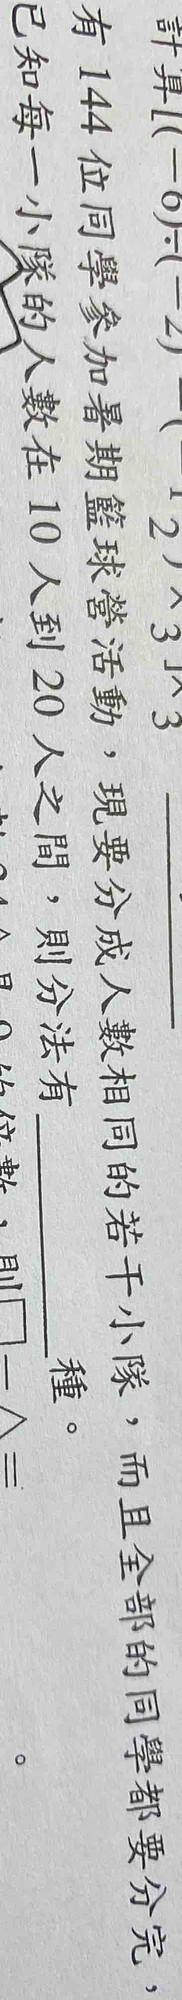 計算[(－6)÷(－2)－(－
有 144 位同學參加暑期籃球營活動，現要分成人數相同的若干小隊，而且全部的同學都要分完，
已知每一小隊的人數在 10 人到 20 人之間，則分法有＿＿＿＿種。
的倍數，則□－△＝＿＿＿＿。